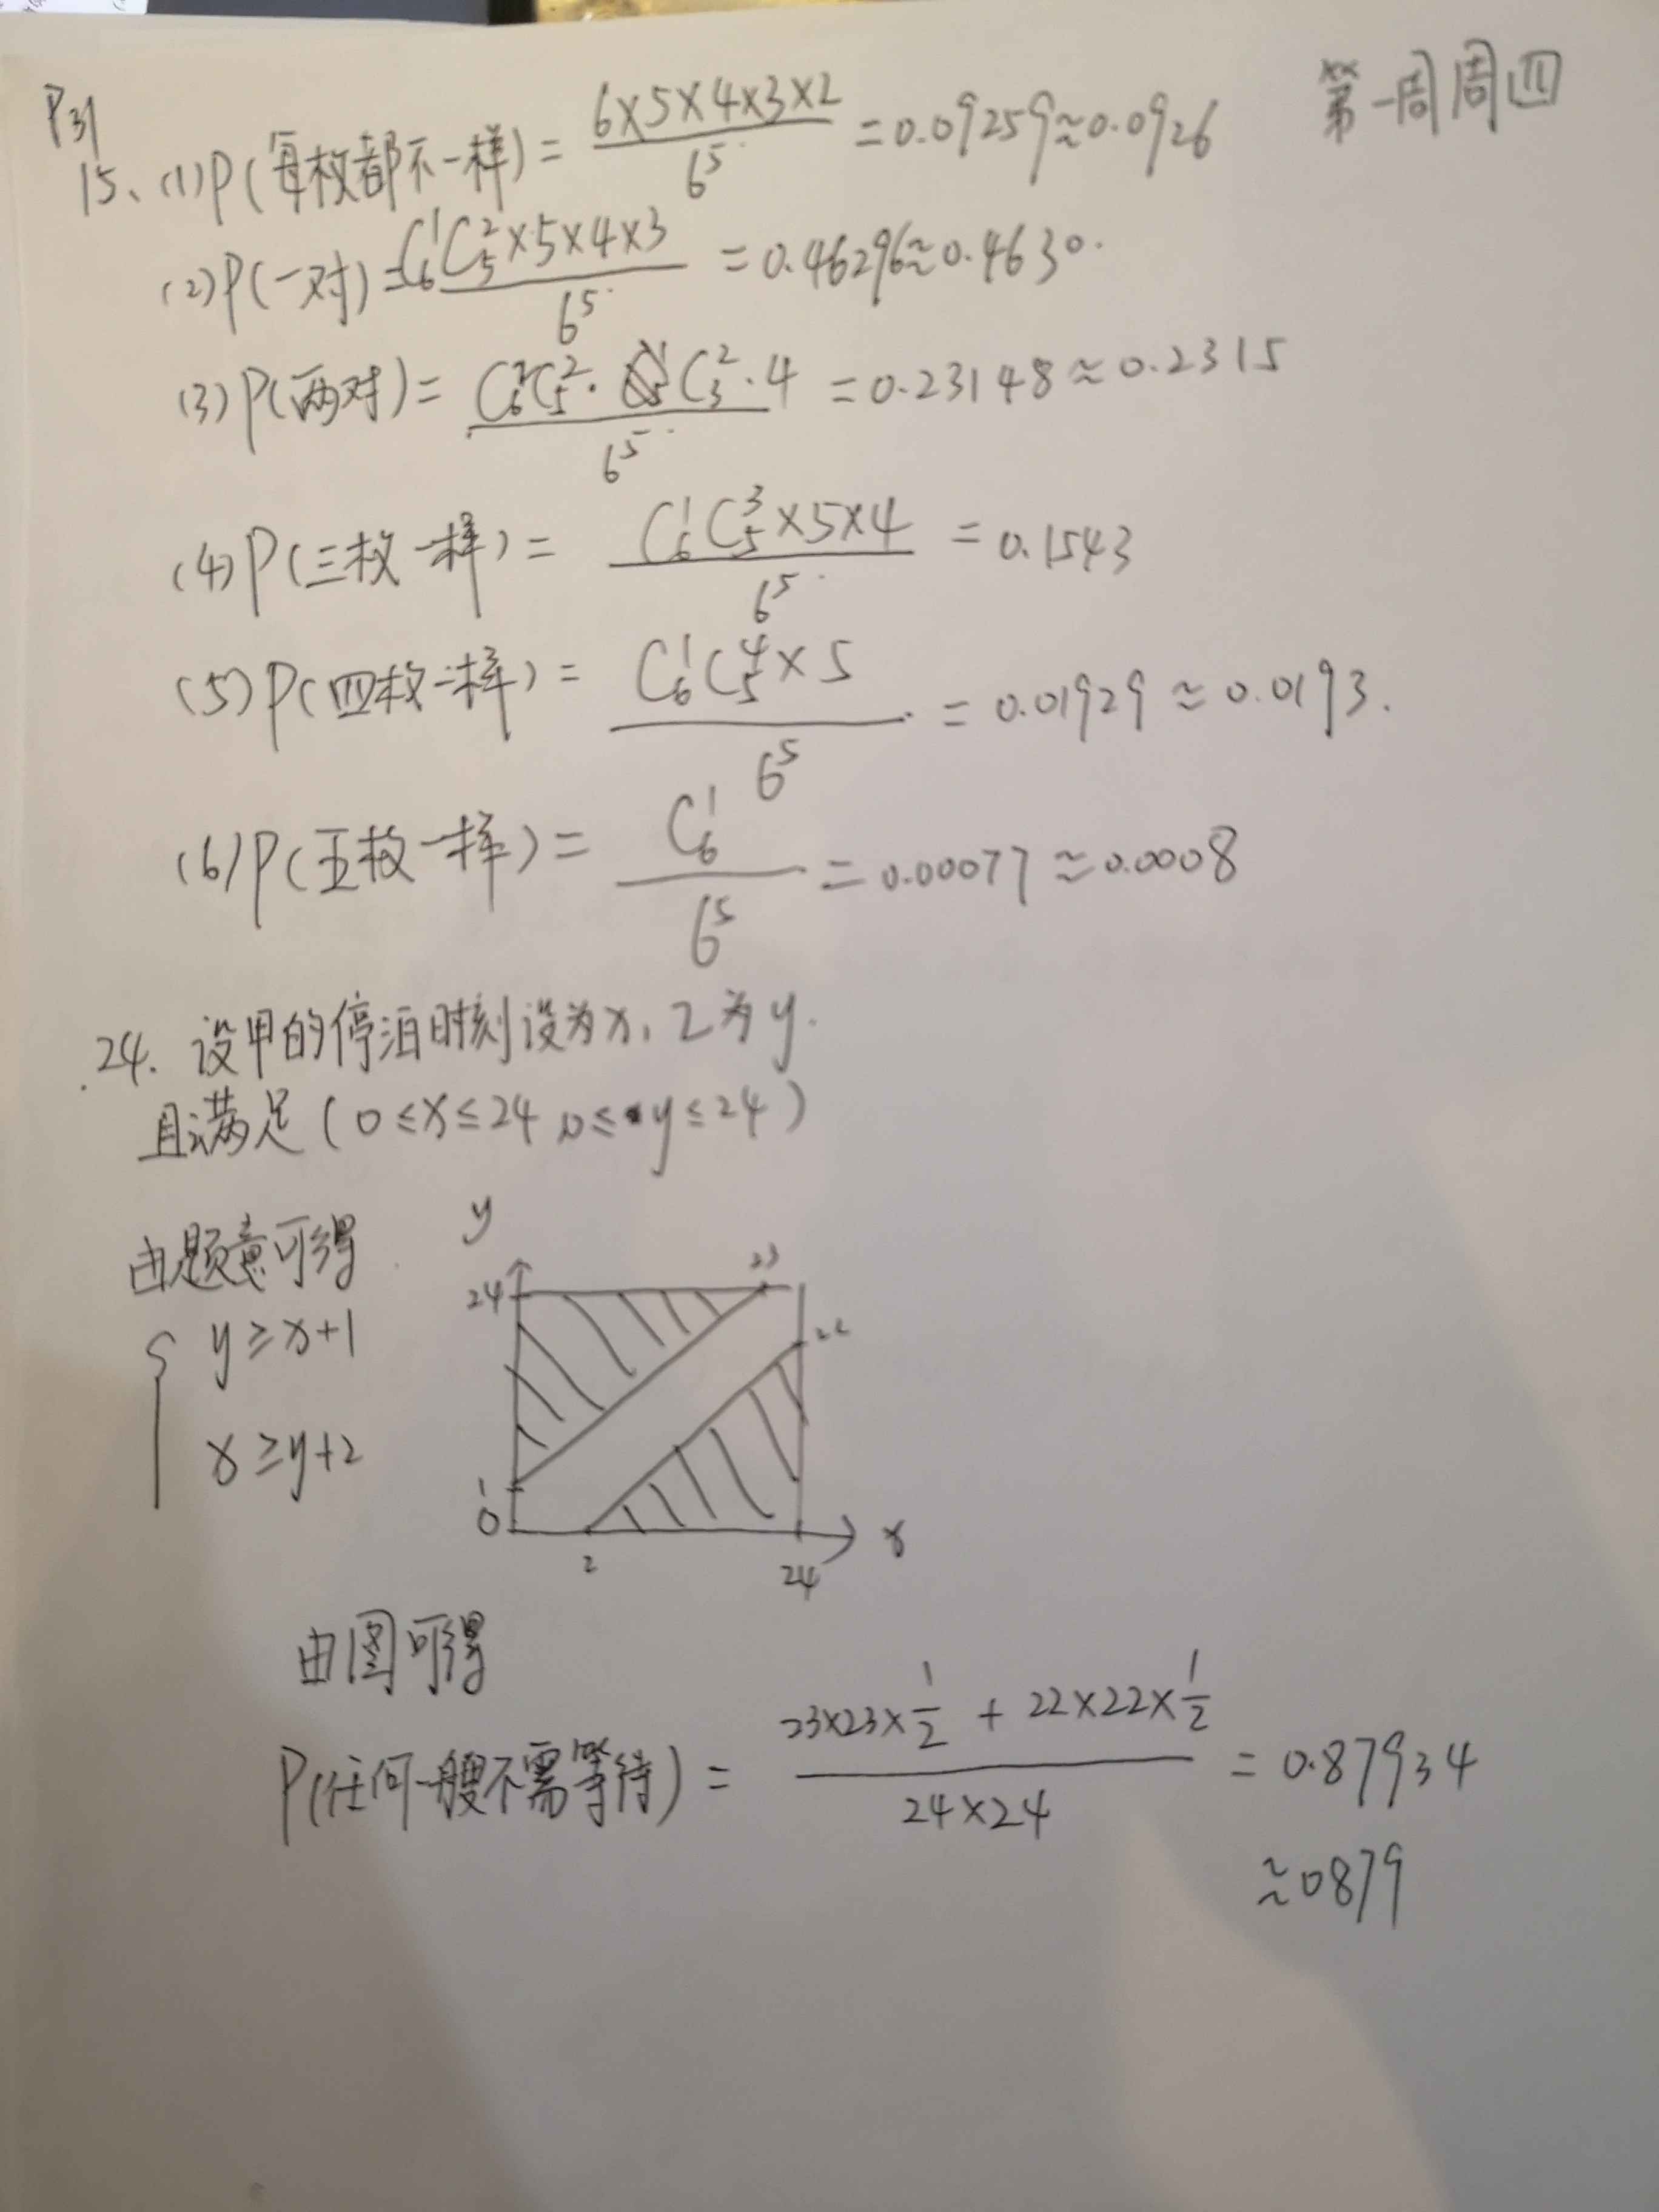 P31
第一周周四
15、(1)P(每枚都不一样) = 6×5×4×3×2 / 6^5 = 0.09259≈0.0926
(2)P(一对) = C_6^1 C_5^2 ×5×4×3 / 6^5 = 0.46296≈0.4630.
(3)P(两对) = C_6^2 C_5^2 · C_3^2 · 4 / 6^5 = 0.23148≈0.2315
(4)P(三枚一样) = C_6^1 C_5^3 ×5×4 / 6^5 = 0.1543
(5)P(四枚一样) = C_6^1 C_5^4 × 5 / 6^5 = 0.01929≈0.0193.
(6)P(五枚一样) = C_6^1 / 6^5 = 0.00077≈0.0008
24. 设甲的停泊时刻设为x, 乙为y.
且满足(0≤x≤24, 0≤y≤24)
由题意可得
y≥x+1
x≥y+2
y
24
23
22
1
0
2
24
x
由图可得
P(任何一艘不需等待) = 23×23×1/2 + 22×22×1/2 / 24×24 = 0.87934
≈0879